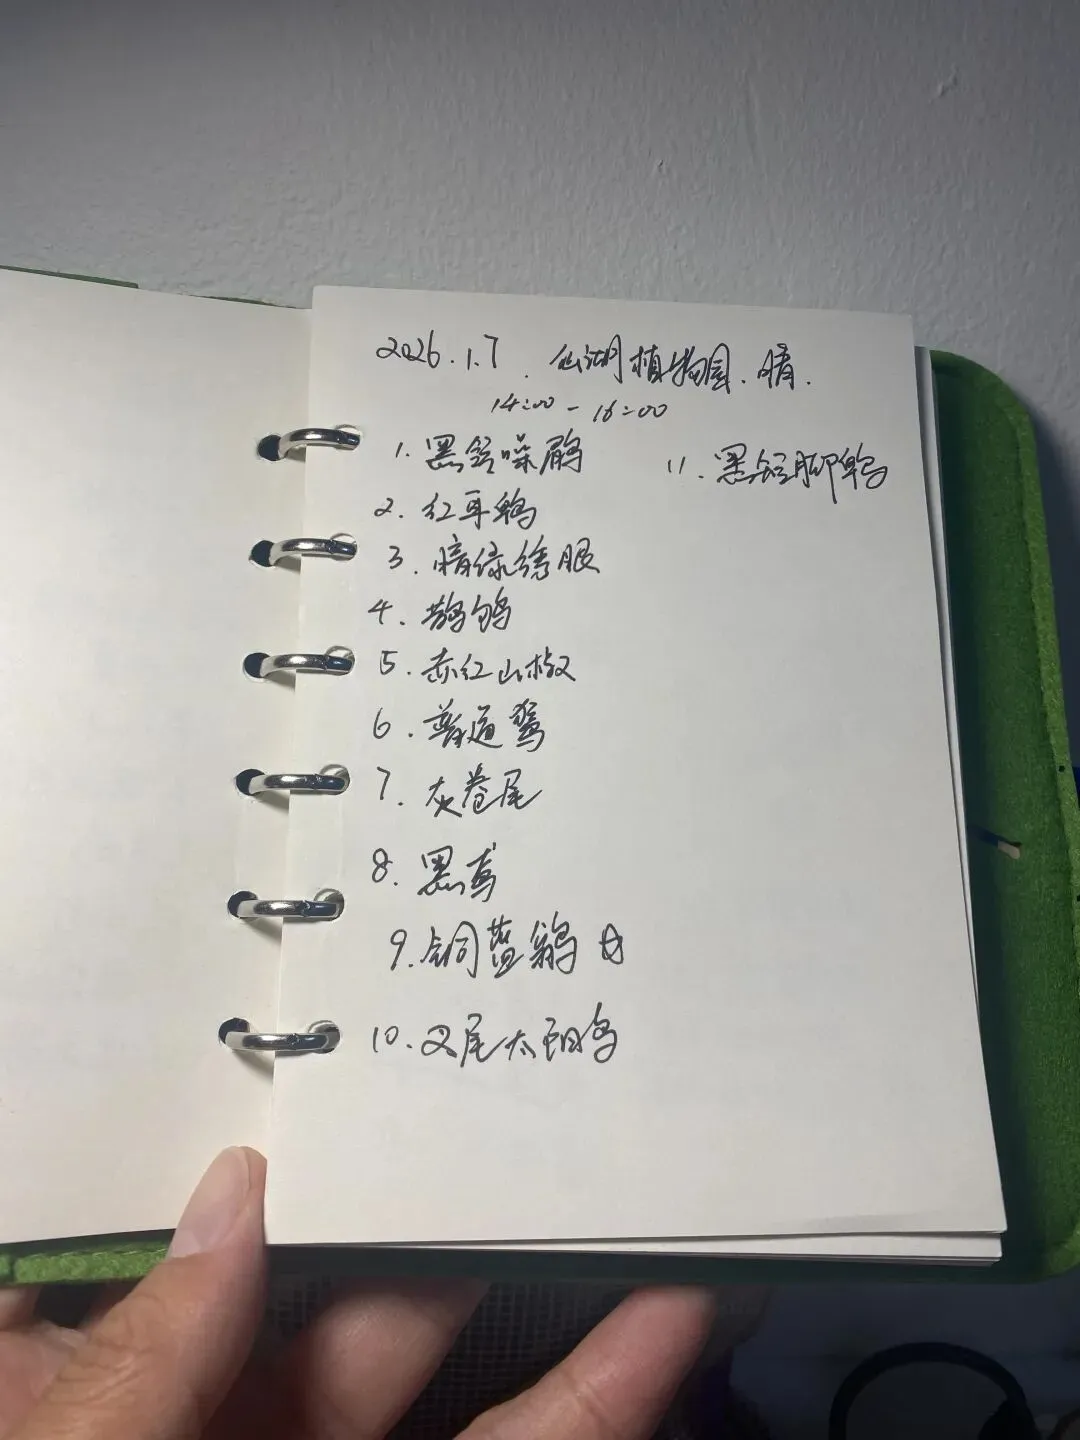 2026.1.7. 仙湖植物园.晴.
14:00-16:00
1.黑领噪鹛
2.红耳鹎
3.暗绿绣眼
4.鹊鸲
5.赤红山椒
6.普通鵟
7.灰卷尾
8.黑鸢
9.铜蓝鹟
10.叉尾太阳鸟
11.黑短脚鹎